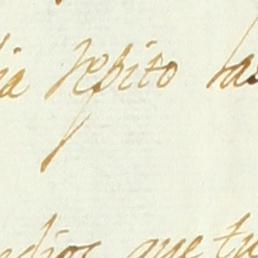 ia repito la
medios que tu